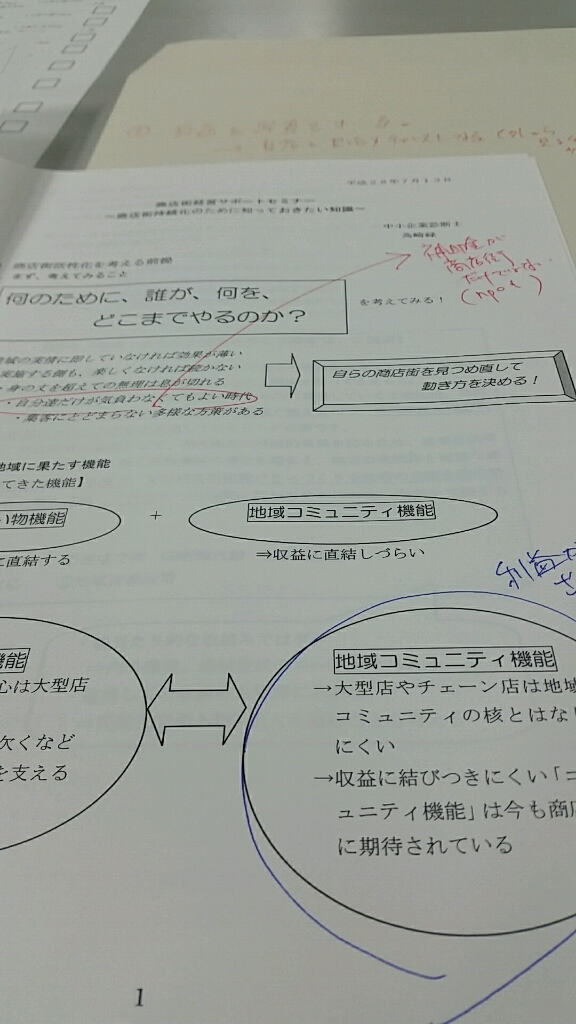 平成28年7月13日
商店街経営サポートセミナー
～商店街持続化のために知っておきたい知識～
中小企業診断士
商店街活性化を考える前提
まず、考えてみること
何のために、誰が、何を、
どこまでやるのか？
を考えてみる！
地域の実情に即していなければ効果が薄い
実施する側も、楽しくなければ続かない
・身の丈を超えての無理は息が切れる
・自分達だけが気負わなくてもよい時代
・集客にとどまらない多様な方策がある
自らの商店街を見つめ直して
動き方を決める！
補助金が
商店街
だけではない
(npoも)
地域に果たす機能
てきた機能】
い物機能
+
地域コミュニティ機能
に直結する
⇒収益に直結しづらい
利益
機能
心は大型店
欠くなど
を支える
地域コミュニティ機能
→大型店やチェーン店は地域
コミュニティの核とはなり
にくい
→収益に結びつきにくい「コ
ュニティ機能」は今も商店
に期待されている
1